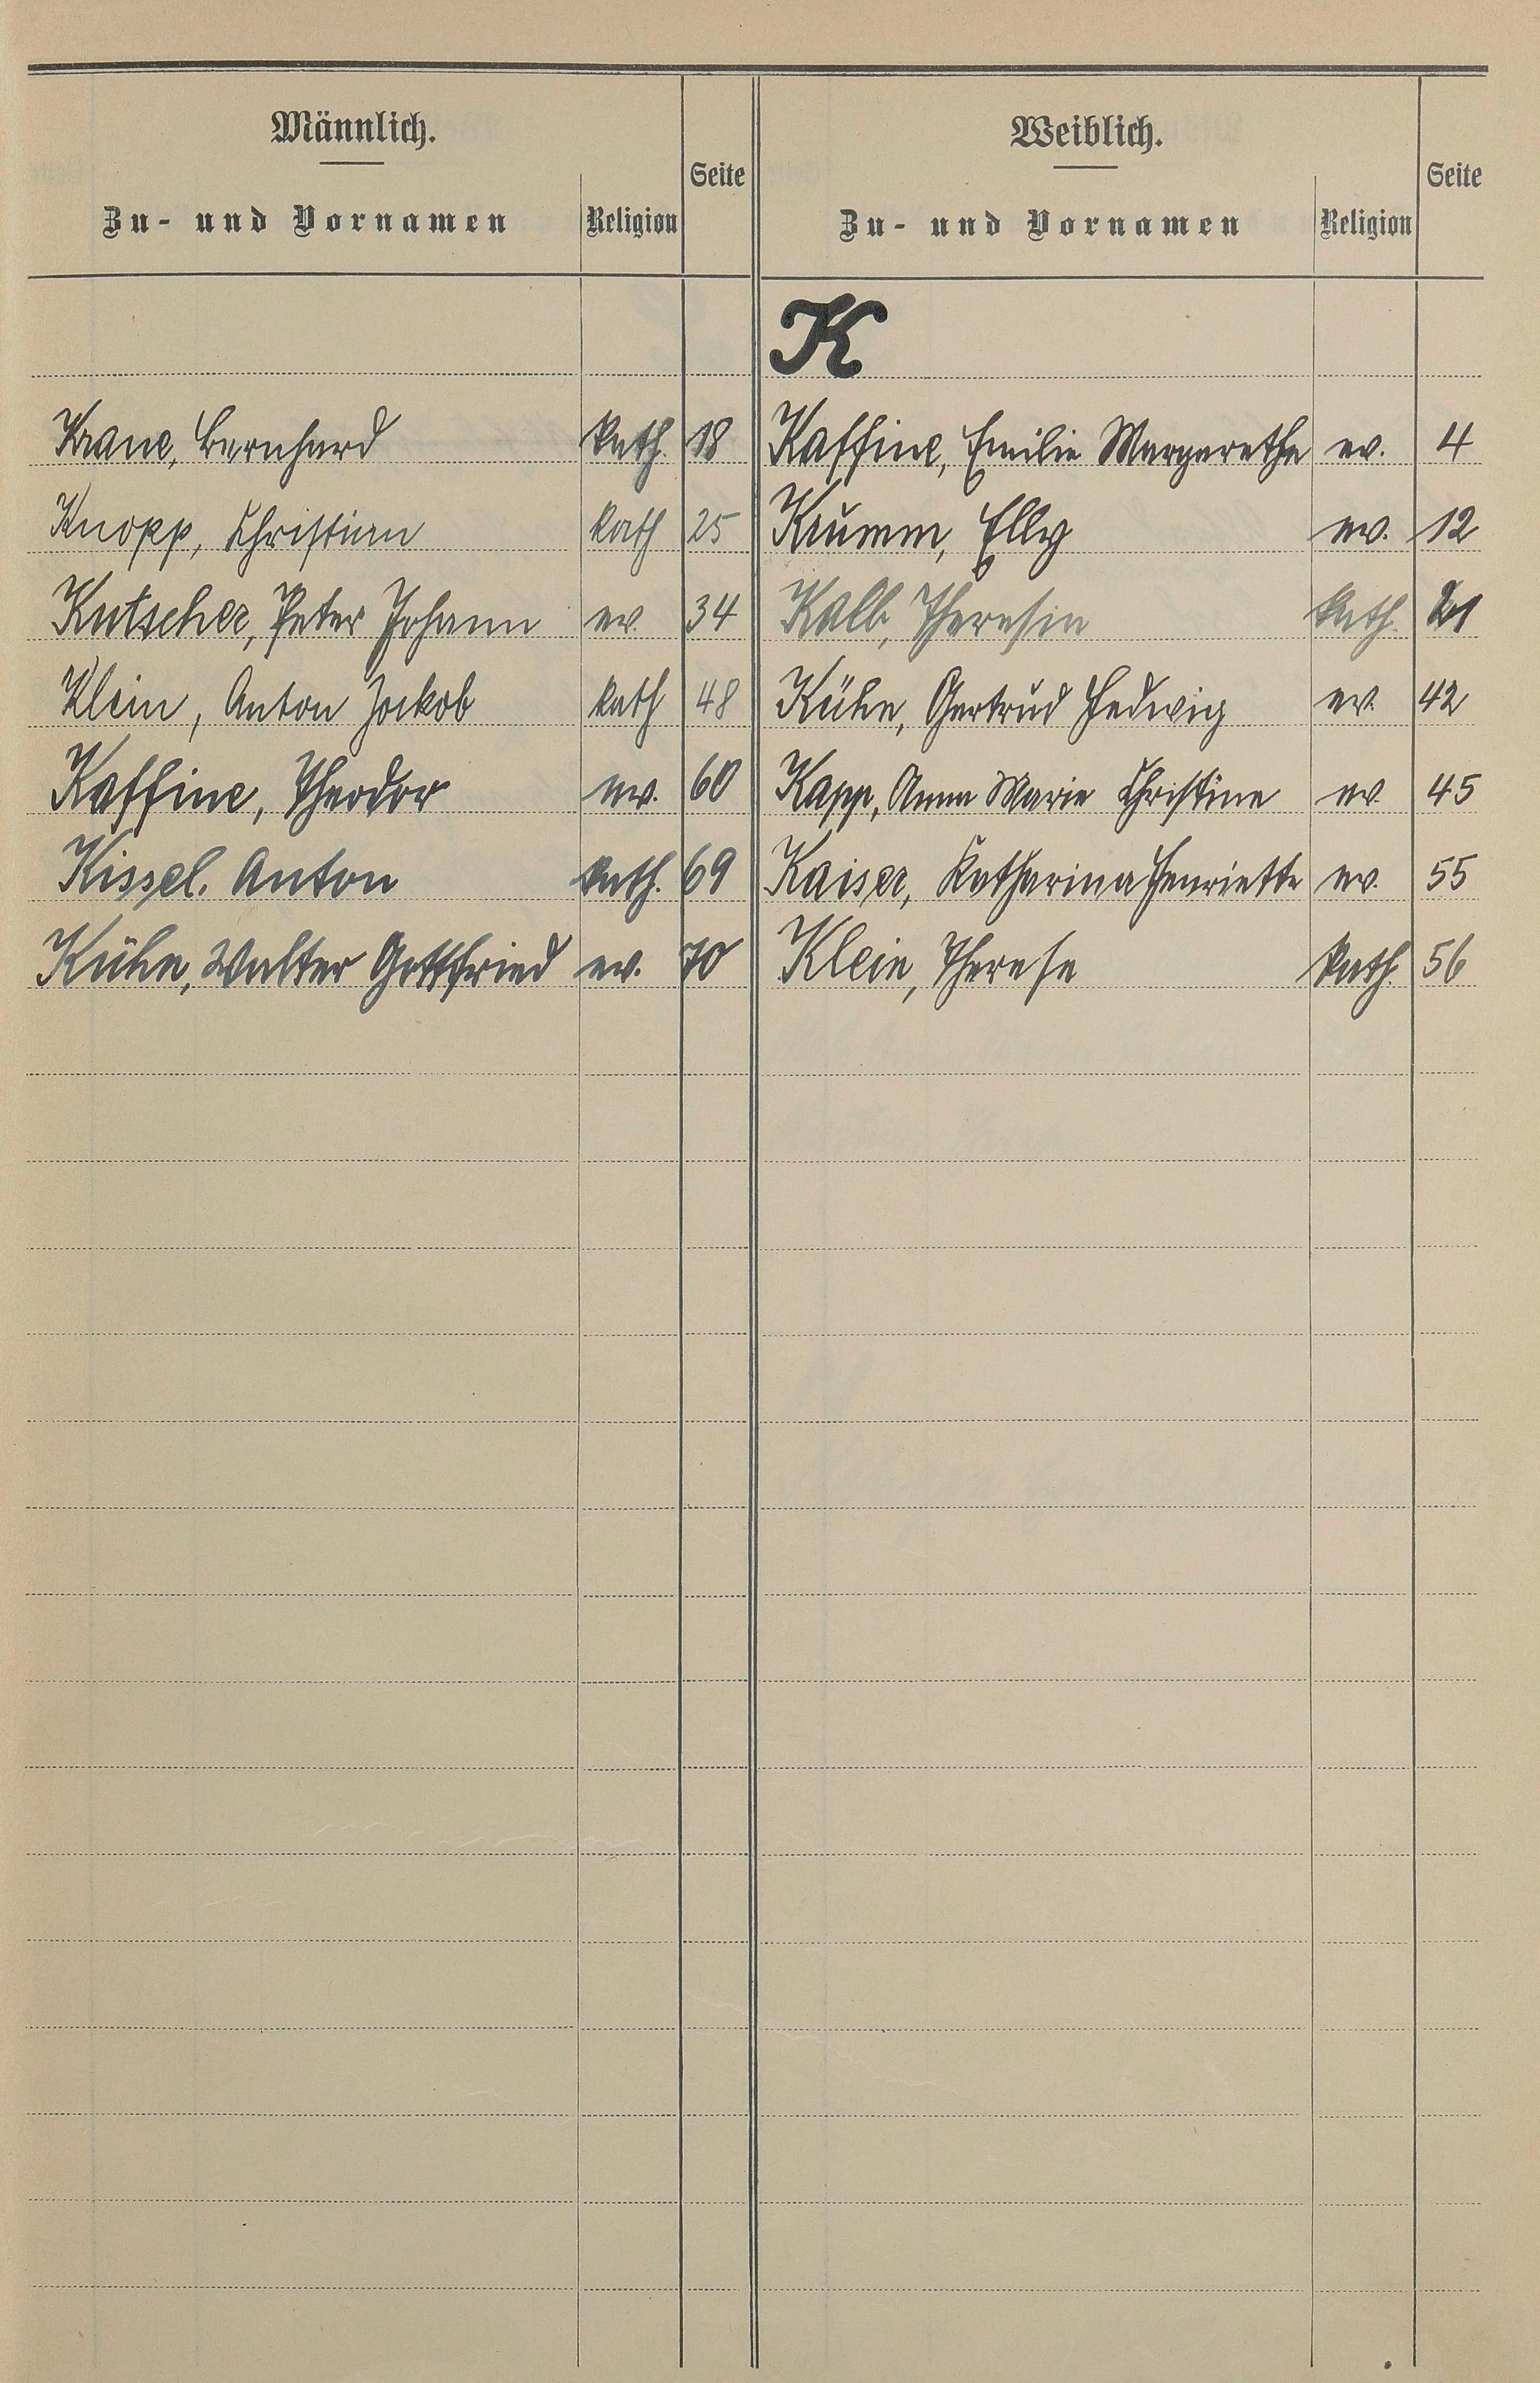 Männlich.
Zu- und Vornamen Religion Seite
Weiblich.
Zu- und Vornamen Religion Seite
K
Krane, Bernhard kath. 18 Kaffine, Emilie Margarethe ev. 4
Knopp, Christian kath 25 Krumm, Elly ev. 12
Kutscher, Peter Johann ev. 34 Kalb, Theresia kath. 21
Klein, Anton Jakob kath 48 Kühn, Gertrud Hedwig ev. 42
Kaffine, Theodor ev. 60 Kapp, Anna Marie Christine ev. 45
Kissel, Anton kath. 69 Kaiser, Katharina Henriette ev. 55
Kühn, Walter Gottfried ev. 70 Klein, Therese kath. 56